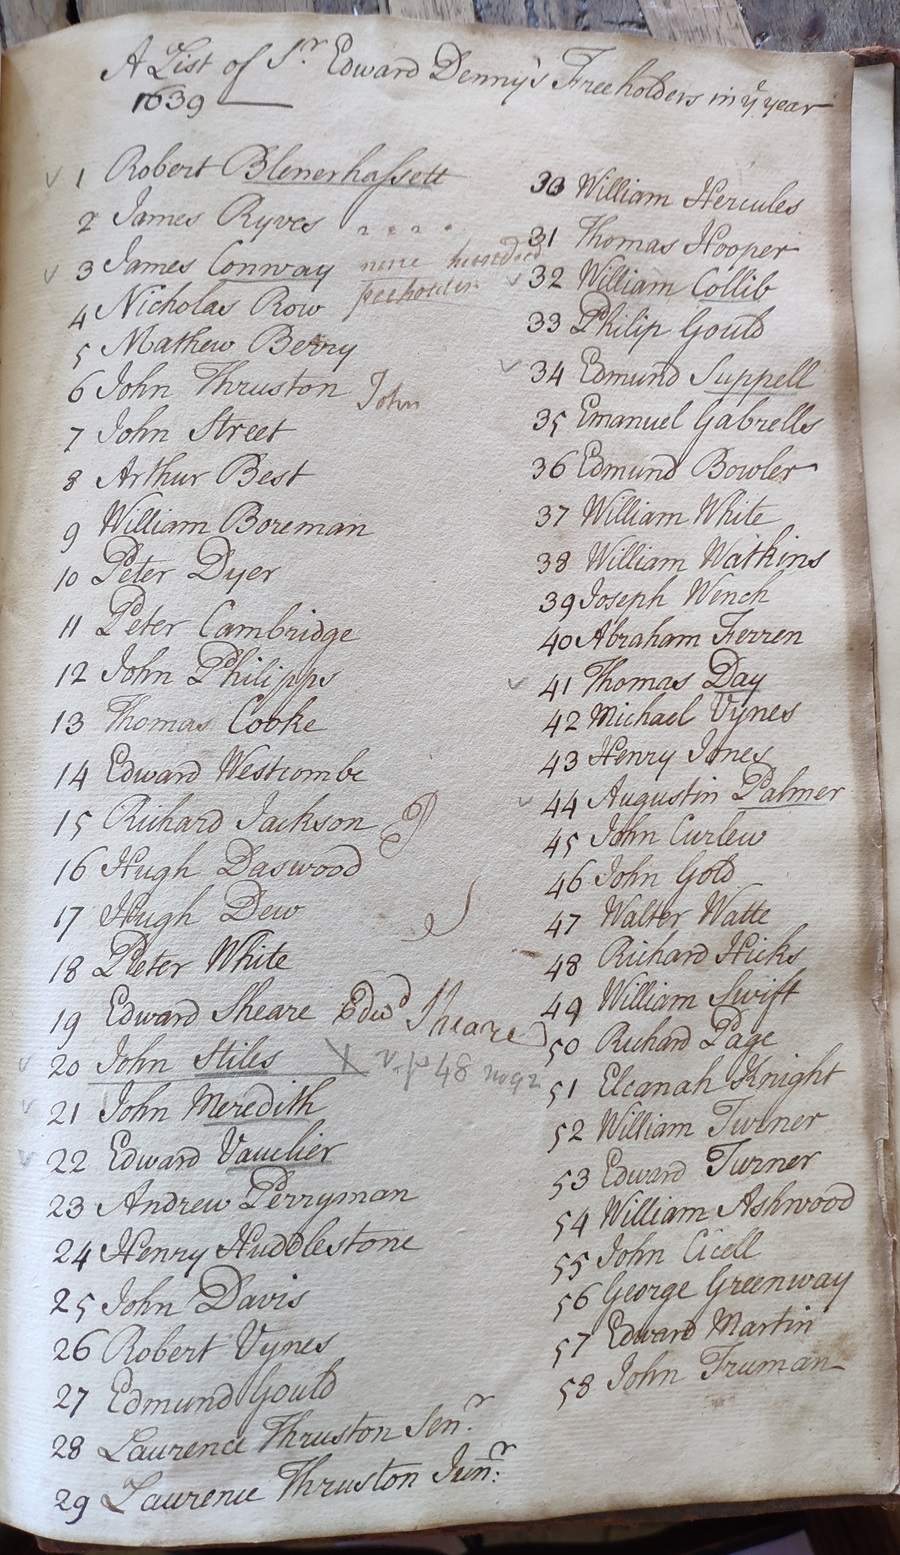 A List of Sr. Edward Denny's Freeholders in ye year
1639
1 Robert Blenerhassett
2 James Ryves
3 James Conway nine hundred
freeholders
4 Nicholas Row
5 Mathew Berry
6 John Thruston John
7 John Street
8 Arthur Best
9 William Boreman
10 Peter Dyer
11 Peter Cambridge
12 John Philipps
13 Thomas Cooke
14 Edward Westcombe
15 Richard Jackson
16 Hugh Daswood
17 Hugh Dew
18 Pieter White
19 Edward Sheare Edwd Sheare
20 John Stiles X v. p 48 no 92
21 John Meredith
22 Edward Vauclier
23 Andrew Perryman
24 Henry Huddlestone
25 John Davis
26 Robert Vynes
27 Edmund Gould
28 Laurence Thruston Senr.
29 Laurence Thruston Junr:
30 William Hercules
31 Thomas Hooper
32 William Collib
33 Philip Gould
34 Edmund Suppell
35 Emanuel Gabrells
36 Edmund Bowler
37 William White
38 William Watkins
39 Joseph Wench
40 Abraham Ferren
41 Thomas Day
42 Michael Vynes
43 Henry Jones
44 Augustin Palmer
45 John Curlew
46 John Gold
47 Walter Watte
48 Richard Hicks
49 William Swift
50 Richard Page
51 Elcanah Knight
52 William Turner
53 Edward Turner
54 William Ashwood
55 John Cicell
56 George Greenway
57 Edward Martin
58 John Truman